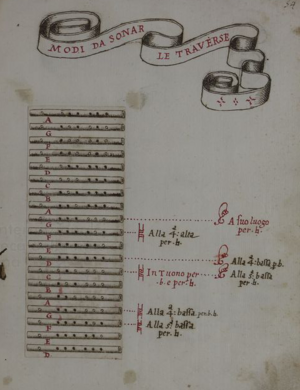 MODI DA SONAR
LE TRAVERSE
A
G
F
E
D
C
B
A
G
F
E
D
C
B
A
G
F
E
D
A suo luogo
per ♮
Alla 4ª: alta
per ♮
Alla 4ª: bassa p. b.
Alla 5ª: bassa
per ♮
In Tuono per
b. e per ♮
Alla 4ª: bassa per ♮. b
Alla 5ª: bassa
per ♮